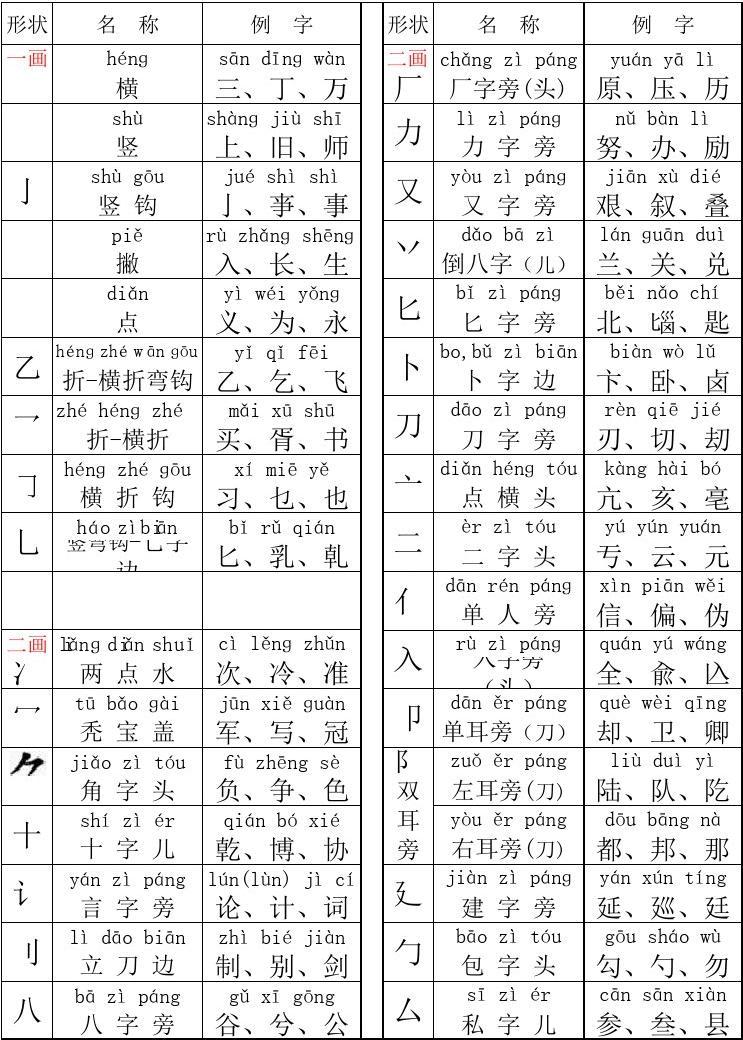 形状 名 称 例 字
一画 héng sān dīng wàn
横 三、丁、万
shù shàng jiù shī
竖 上、旧、师
亅 shù gōu jué shì shì
竖 钩 亅、亊、事
piě rù zhǎng shēng
撇 入、长、生
diǎn yì wéi yǒng
点 义、为、永
乙 héng zhé wān gōu yǐ qǐ fēi
折-横折弯钩 乙、乞、飞
乛 zhé héng zhé mǎi xū shū
折-横折 买、胥、书
𠃌 héng zhé gōu xí miē yě
横 折 钩 习、乜、也
乚 háo zì biān bǐ rǔ qián
竖弯钩-乚字边 匕、乳、乹
二画 liǎng diǎn shuǐ cì lěng zhǔn
冫 两 点 水 次、冷、准
冖 tū bǎo gài jūn xiě guàn
秃 宝 盖 军、写、冠
⺈ jiǎo zì tóu fù zhēng sè
角 字 头 负、争、色
十 shí zì ér qián bó xié
十 字 儿 乾、博、协
讠 yán zì páng lún(lùn) jì cí
言 字 旁 论、计、词
刂 lì dāo biān zhì bié jiàn
立 刀 边 制、别、剑
八 bā zì páng gǔ xī gōng
八 字 旁 谷、兮、公
形状 名 称 例 字
二画 chǎng zì páng yuán yā lì
厂 厂字旁(头) 原、压、历
力 lì zì páng nǔ bàn lì
力 字 旁 努、办、励
又 yòu zì páng jiān xù dié
又 字 旁 艰、叙、叠
丷 dǎo bā zì lán guān duì
倒八字（儿） 兰、关、兑
匕 bǐ zì páng běi nǎo chí
匕 字 旁 北、匘、匙
卜 bo,bǔ zì biān biàn wò lǔ
卜 字 边 卞、卧、卤
刀 dāo zì páng rèn qiē jié
刀 字 旁 刃、切、刧
亠 diǎn héng tóu kàng hài bó
点 横 头 亢、亥、亳
二 èr zì tóu yú yún yuán
二 字 头 亏、云、元
亻 dān rén páng xìn piān wěi
单 人 旁 信、偏、伪
入 rù zì páng quán yú wáng
入字旁（头） 全、兪、兦
卩 dān ěr páng què wèi qīng
单耳旁（刀） 却、卫、卿
阝 zuǒ ěr páng liù duì yì
双 左耳旁(刀) 陆、队、阣
耳 yòu ěr páng dōu bāng nà
旁 右耳旁(刀) 都、邦、那
廴 jiàn zì páng yán xún tíng
建 字 旁 延、廵、廷
勹 bāo zì tóu gōu sháo wù
包 字 头 勾、勺、勿
厶 sī zì ér cān sān xiàn
私 字 儿 参、叁、县